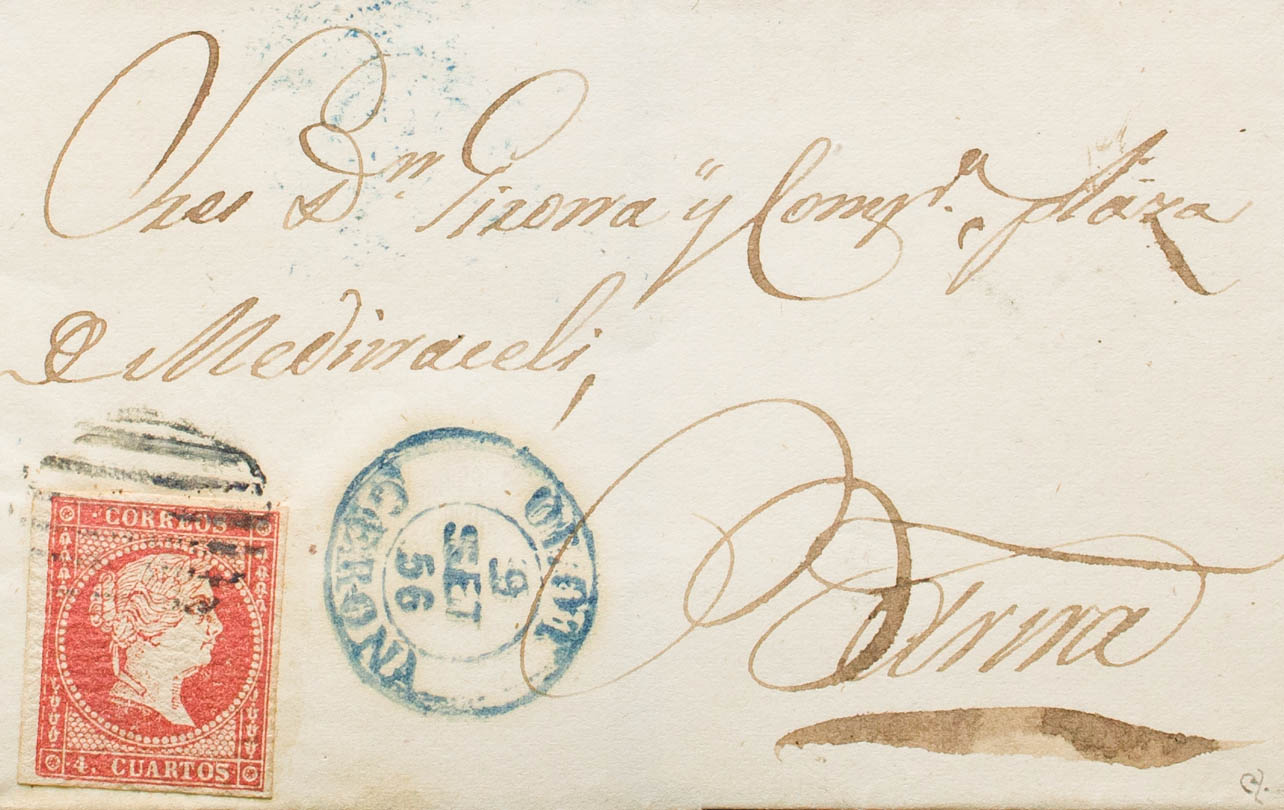 Sres Dn. Girona y Compa. plaza
de Medinaceli,
Barna
CORREOS
4. CUARTOS
GERONA
9
SET
56